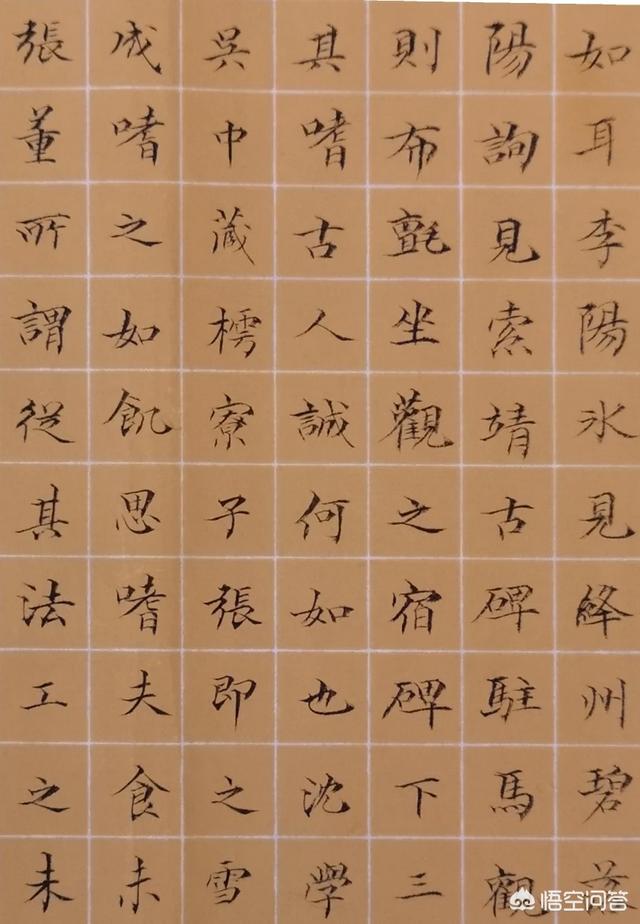 如耳李陽氷見絳州碧落
陽詢見索靖古碑駐馬觀
則布氈坐觀之宿碑下三
其嗜古人誠何如也沈學
吳中藏樗寮子張即之雪
成嗜之如飢思嗜夫食未
張董所謂從其法工之未
悟空问答